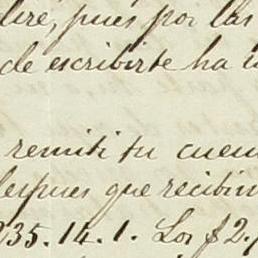 pues por las
de escribirte ha
remiti tu cuen
despues que recibi
35.14.1. Los $2.